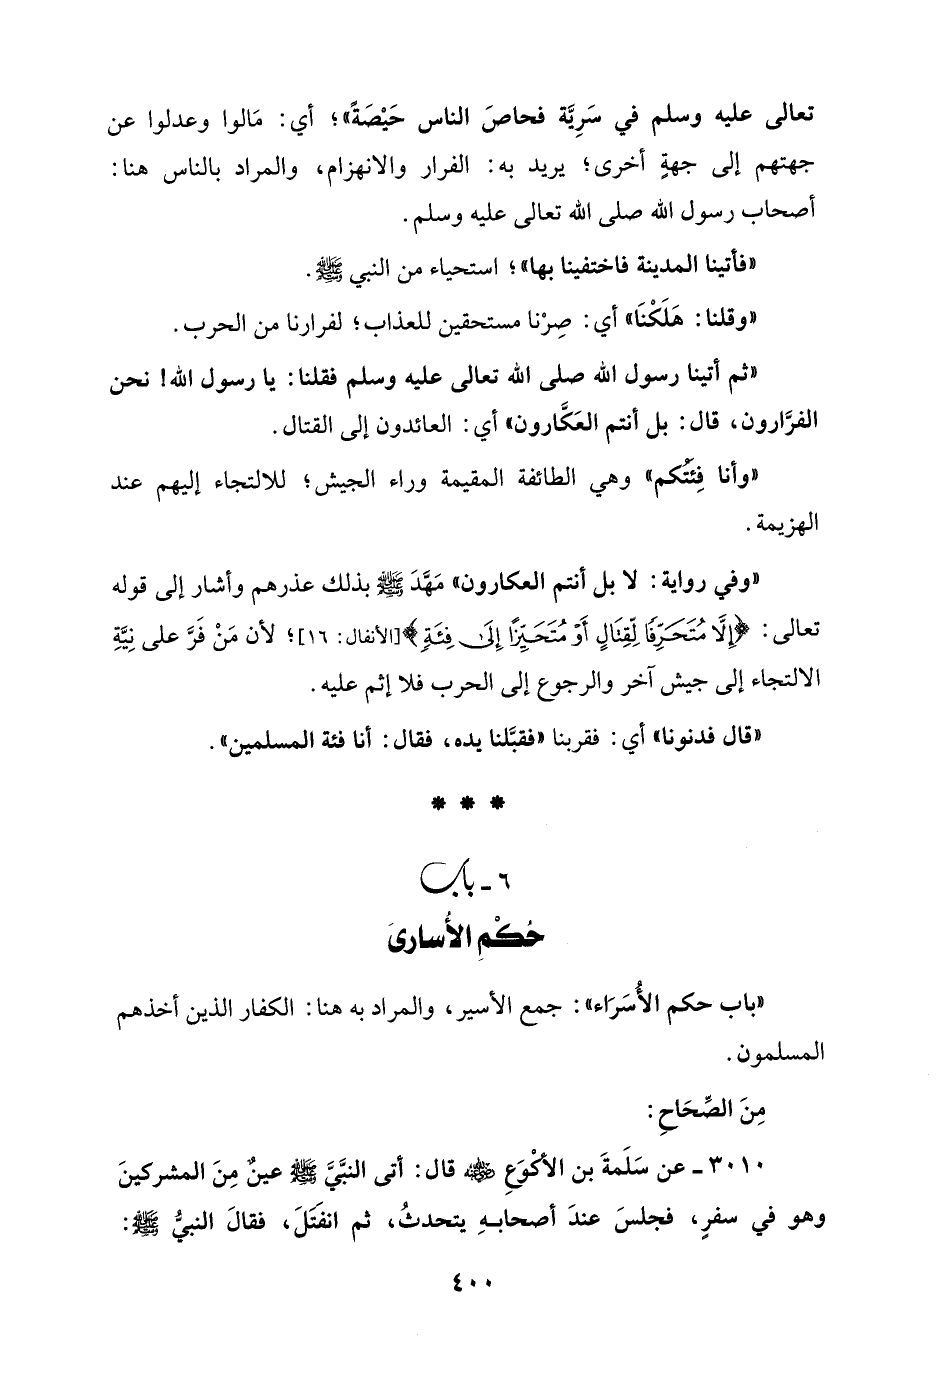 تعالى عليه وسلم في سَرِيَّة فحاصَ الناس حَيْصَةً»؛ أي: مَالوا وعدلوا عن
جهتهم إلى جهةٍ أخرى؛ يريد به: الفرار والانهزام، والمراد بالناس هنا:
أصحاب رسول الله صلى الله تعالى عليه وسلم.
«فأتينا المدينة فاختفينا بها»؛ استحياء من النبي ﷺ.
«وقلنا: هَلَكْنَا» أي: صِرْنا مستحقين للعذاب؛ لفرارنا من الحرب.
«ثم أتينا رسول الله صلى الله تعالى عليه وسلم فقلنا: يا رسول الله! نحن
الفرَّارون، قال: بل أنتم العَكَّارون» أي: العائدون إلى القتال.
«وأنا فِئَتُكم» وهي الطائفة المقيمة وراء الجيش؛ للالتجاء إليهم عند
الهزيمة.
«وفي رواية: لا بل أنتم العكارون» مَهَّدَ ﷺ بذلك عذرهم وأشار إلى قوله
تعالى: ﴿إِلَّا مُتَحَرِّفًا لِّقِتَالٍ أَوْ مُتَحَيِّزًا إِلَىٰ فِئَةٍ﴾[الأنفال: ١٦]؛ لأن مَنْ فَرَّ على نِيَّةِ
الالتجاء إلى جيش آخر والرجوع إلى الحرب فلا إثم عليه.
«قال فدنونا» أي: فقربنا «فقبَّلنا يده، فقال: أنا فئة المسلمين».
* * *
٦ - باب
حُكْمِ الأُسارىَ
«باب حكم الأُسَرَاء»: جمع الأسير، والمراد به هنا: الكفار الذين أخذهم
المسلمون.
مِنَ الصِّحَاحِ:
٣٠١٠ - عن سَلَمةَ بن الأكْوَعِ ﷺ قال: أتى النبَّيَّ ﷺ عينٌ مِنَ المشركينَ
وهو في سفرٍ، فجلسَ عندَ أصحابهِ يتحدثُ، ثم انفَتَلَ، فقالَ النبيُّ ﷺ:
٤٠٠